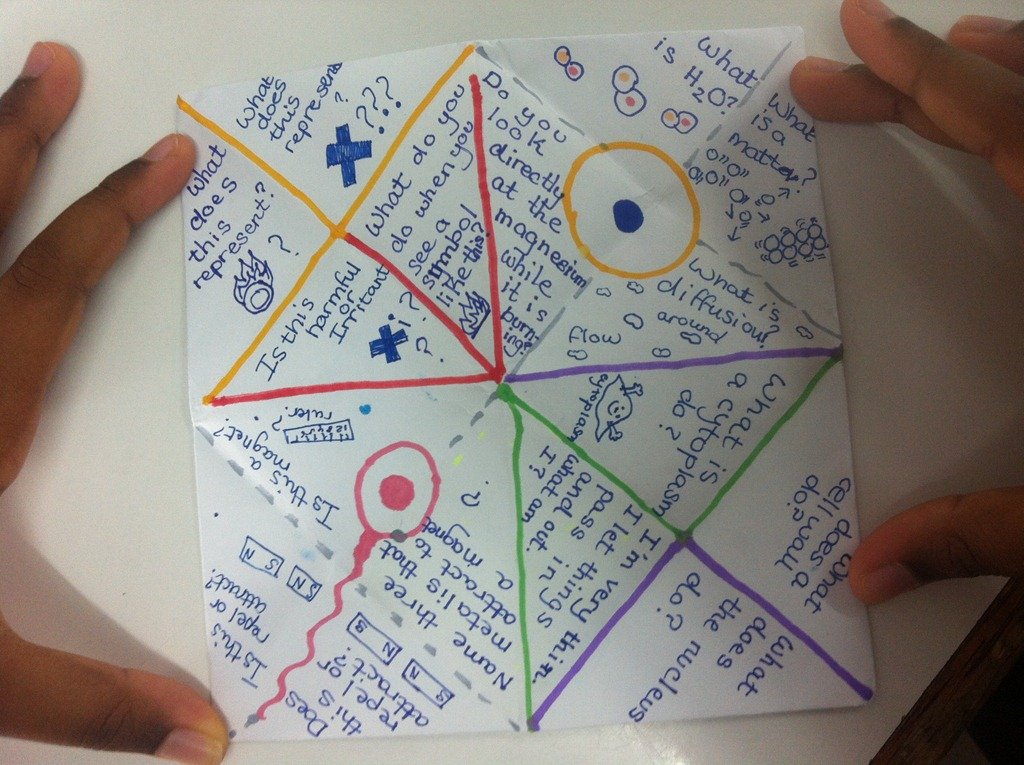 What
does
this
represent
?
????
What
does
this
represent?
?
What do you
do when you
see a
simbol
like this?
Is this
harmful
or
Irritant
i?
?
Do you
look
directly
at the
magnesium
while
it is
burn
ing?
What
is H₂O?
What
is a
matter?
What is
diffusion?
flow
around
What is
a cytoplasm
do?
cytoplasm
I'm very thin
I let things
pass in
and out.
what am
I?
What does a
cell wall
do?
What
does
the nucleus
do?
Name three
metalis that
attract to
a magnet
?
Does
this
repel or
attract?
N S
N S
Is this
repel or
attract?
S N
N S
Is this a
magnet?
ruler?